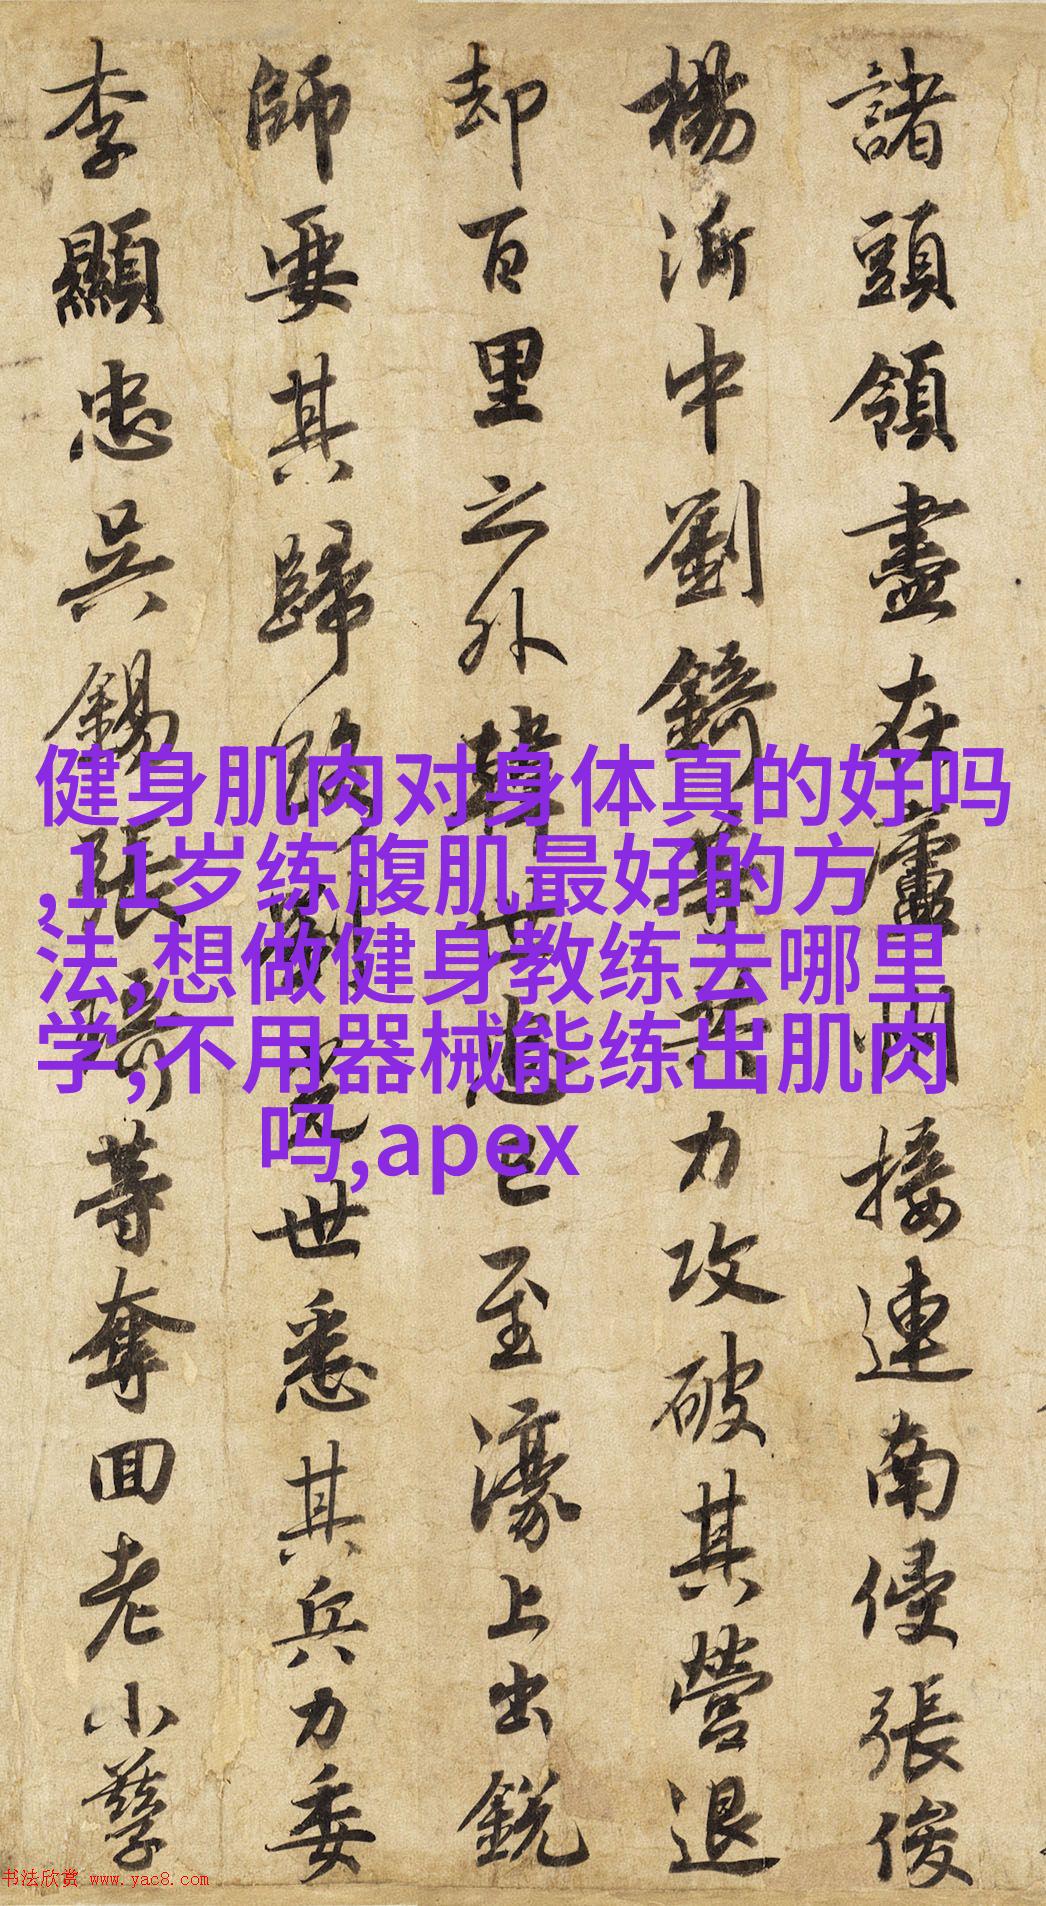 諸頭領盡在廬州接連南侵張俊
楊沂中劉錡等共力攻破其營退
却百里之外韓世忠已至濠上出銳
師要其歸路劉光世悉其兵力委
李顯忠吳錫張琦等奪回老小孳
健身肌肉对身体真的好吗
,11岁练腹肌最好的方
法,想做健身教练去哪里
学,不用器械能练出肌肉
吗,apex
书法欣赏 www.yac8.com